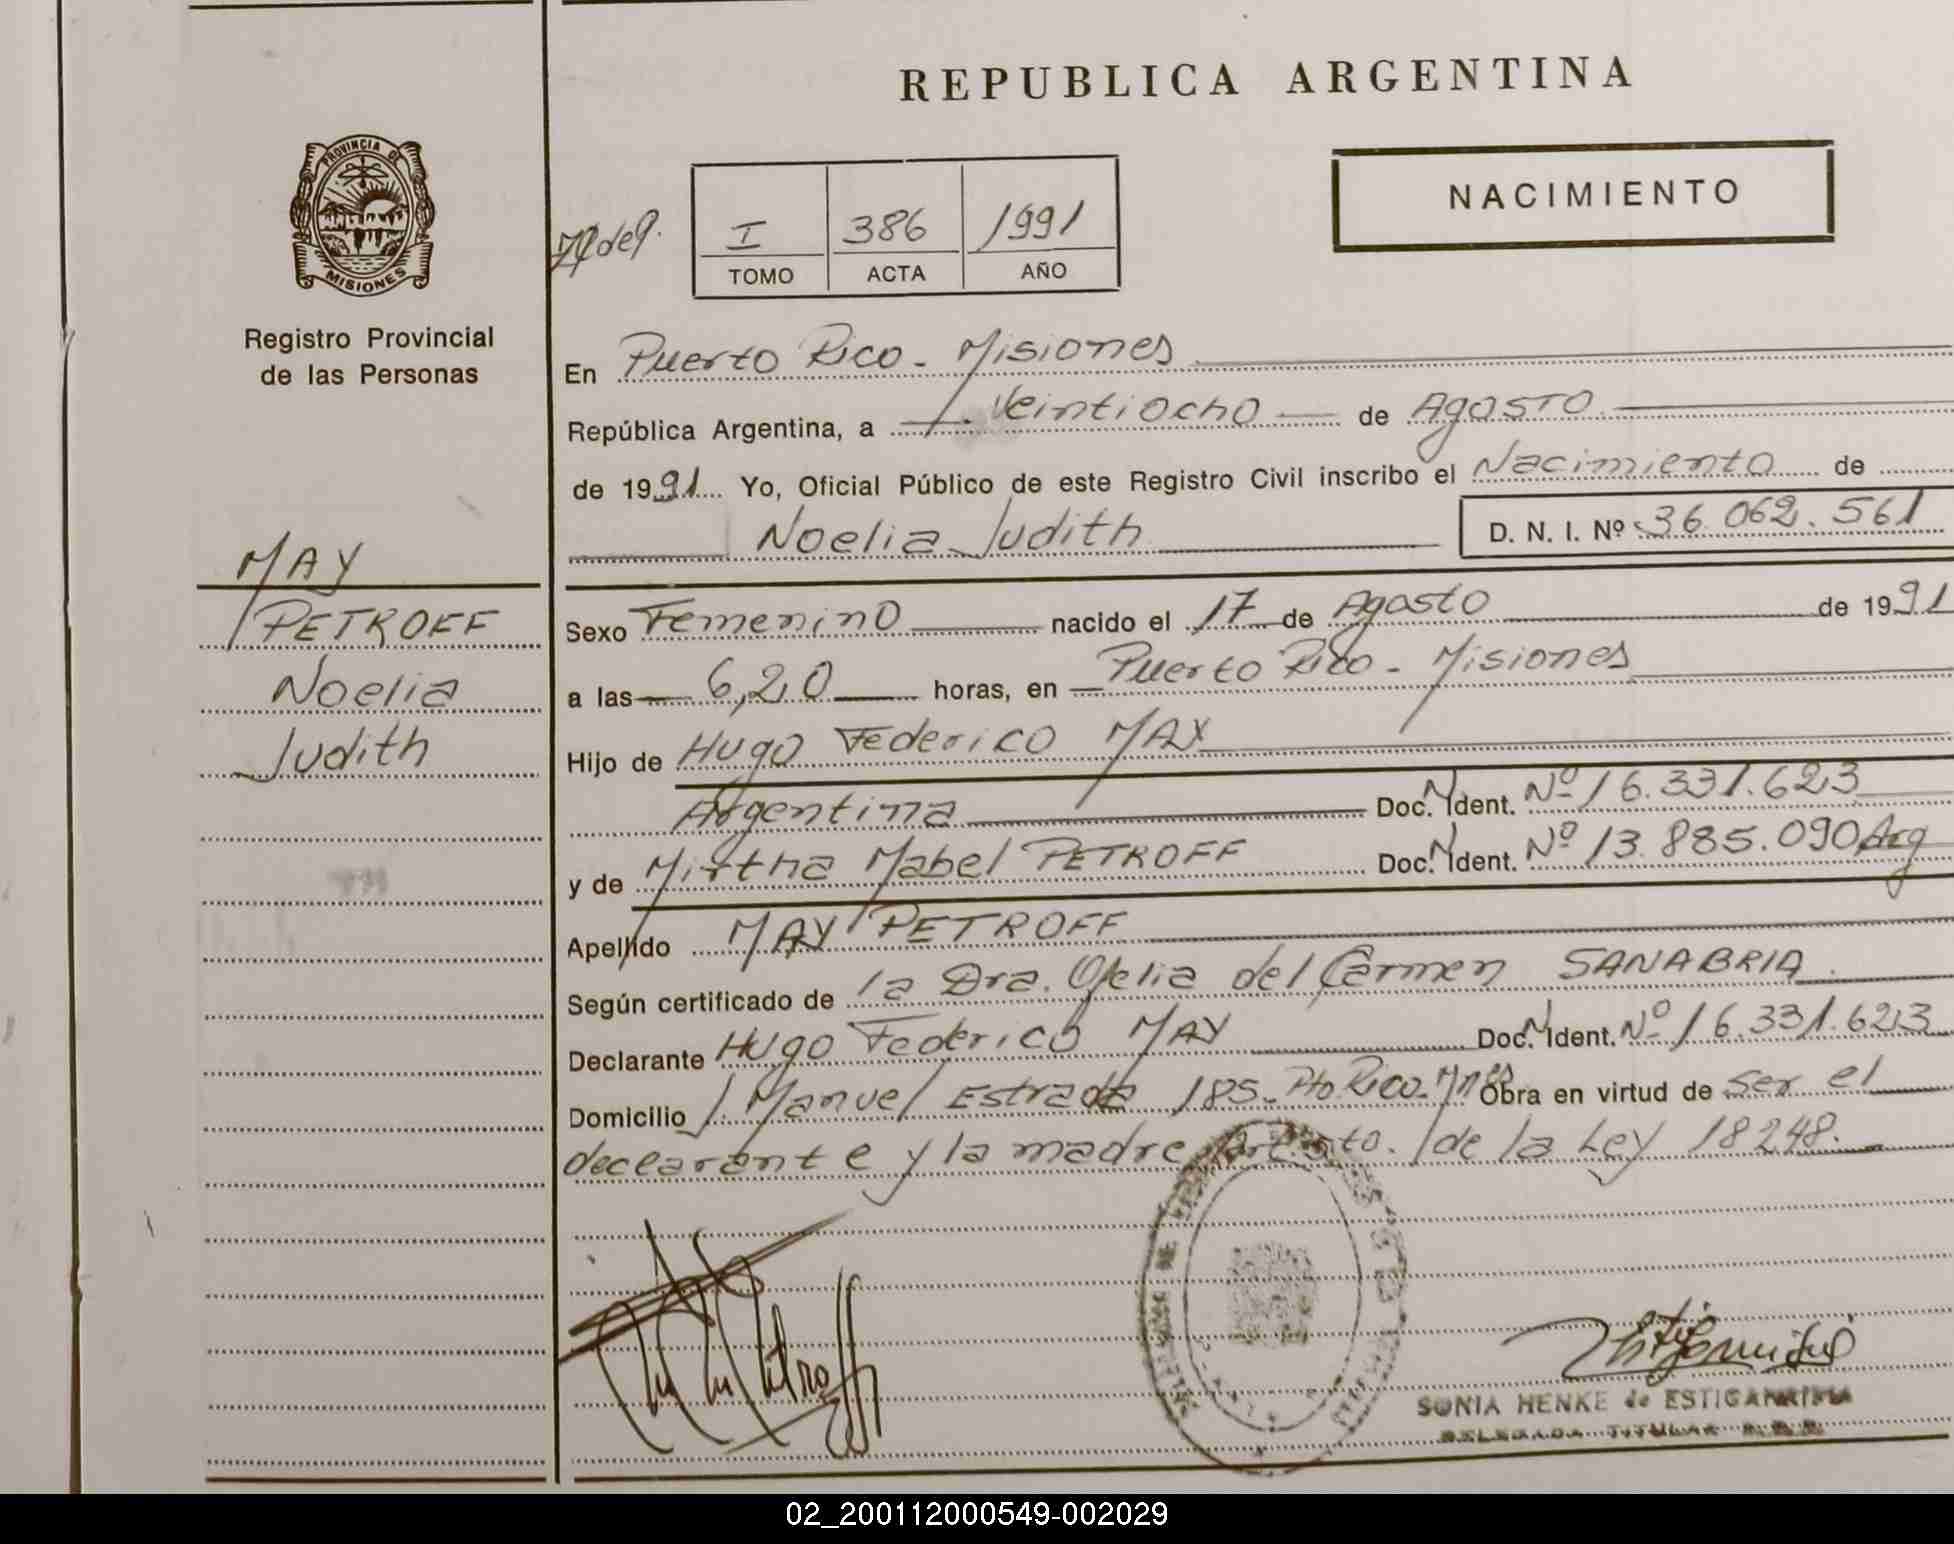 REPUBLICA ARGENTINA
PROVINCIA DE
MISIONES
Registro Provincial
de las Personas
NACIMIENTO
I 386 1991
TOMO ACTA AÑO
En Puerto Rico - Misiones
República Argentina, a Veintiocho de Agosto
de 1991 Yo, Oficial Público de este Registro Civil inscribo el Nacimiento de
Noelia Judith D. N. I. Nº 36.062.561
MAY
PETROFF
Noelia
Judith
Sexo Femenino nacido el 17 de Agosto de 1991
a las 6,20 horas, en Puerto Rico - Misiones
Hijo de Hugo Federico MAY
Argentina Doc. N. Ident. Nº 16.331.623
y de Mirtha Mabel PETROFF Doc. N. Ident. Nº 13.885.090 Arg
Apellido MAY PETROFF
Según certificado de la Dra. Ofelia del Carmen SANABRIA.
Declarante Hugo Federico MAY Doc. N. Ident. Nº 16.331.623
Domicilio J. Manuel Estrada 185 - Pto Rico - Mnes Obra en virtud de ser el
declarante y la madre Art. 5to. de la Ley 18248.
SONIA HENKE de ESTIGARRIBIA
DELEGADA TITULAR
02_200112000549-002029